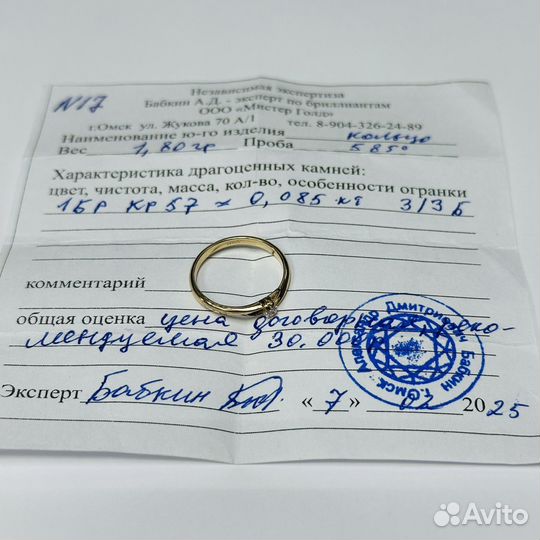 N17
Независимая экспертиза
Бабкин А.Д. - эксперт по бриллиантам
ООО «Мистер Голд»
г.Омск ул. Жукова 70 А/1 тел. 8-904-326-24-89
Наименование ю-го изделия кольцо
Вес 1,80 гр Проба 585°
Характеристика драгоценных камней:
цвет, чистота, масса, кол-во, особенности огранки
1БР КР57 х 0,085 кт 3/3 Б
комментарий
общая оценка цена договорная, реко-
мендуемая 30.00
Эксперт Бабкин
« 7 » 02 2025
Александр Дмитриевич Бабкин г.Омск
Avito